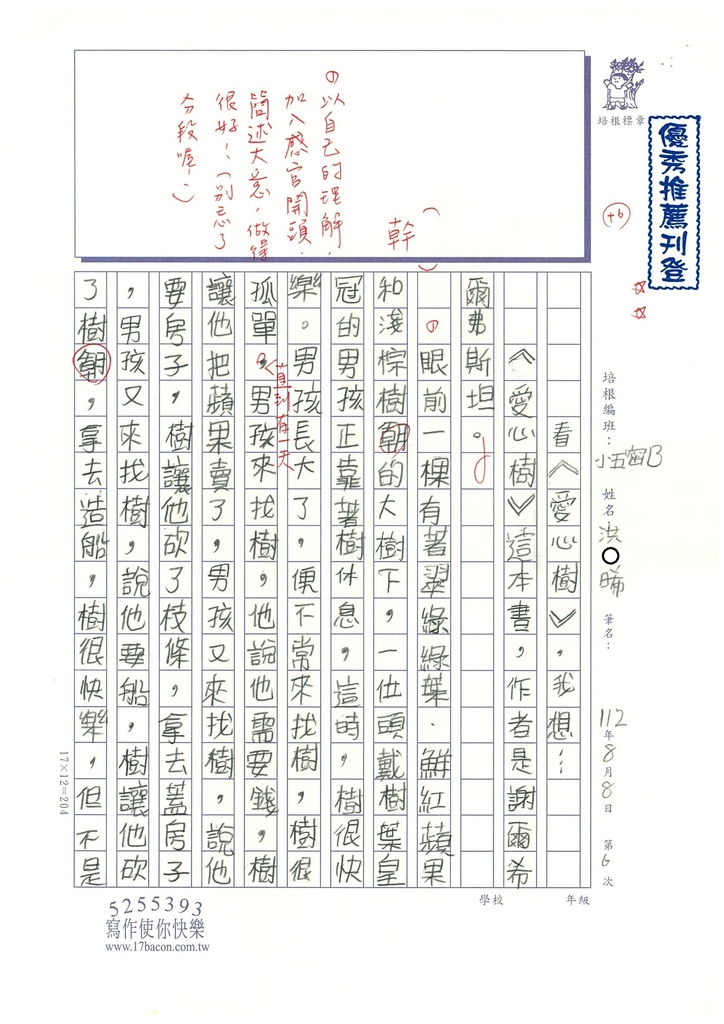 培根標章
優秀推薦刊登
+6
培根編班：小五密B
姓名：洪○晞
筆名：
112年8月8日 第6次
學校 年級
（幹）
①以自己的理解，
加入感官開頭，
簡述大意，做得
很好！（別忘了
分段喔！）
看《愛心樹》，我想…
《愛心樹》這本書，作者是謝爾希
爾弗斯坦。
①眼前一棵有著翠綠綠葉．鮮紅蘋果
和淺棕樹朝的大樹下，一位頭戴樹葉皇
冠的男孩正靠著樹休息，這時，樹很快
樂。男孩長大了，便不常來找樹，樹很
直到有一天
孤單，男孩來找樹，他說他需要錢，樹
讓他把蘋果賣了，男孩又來找樹，說他
要房子，樹讓他砍了枝條，拿去蓋房子
，男孩又來找樹，說他要船，樹讓他砍
了樹朝，拿去造船，樹很快樂，但不是
17×12=204
5255393
寫作使你快樂
www.17bacon.com.tw